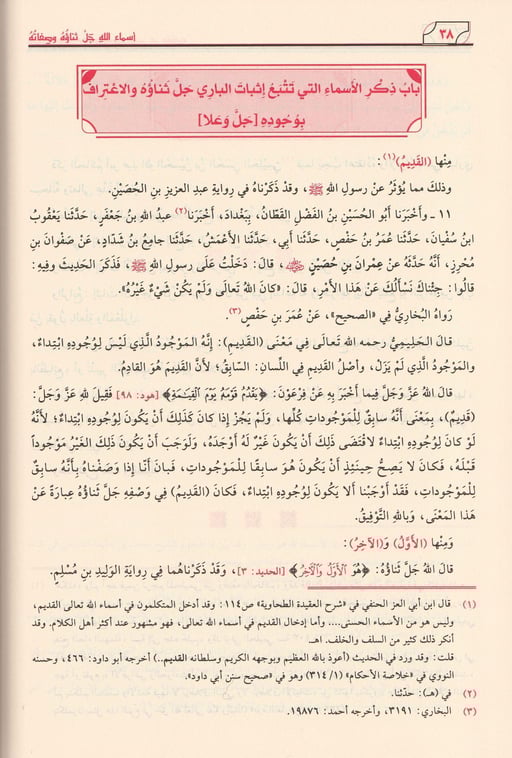 ٣٨
أسماء الله جَلَّ ثَناؤُهُ وصِفاتُهُ
بابُ ذِكْرِ الأَسماءِ التي تَتْبَعُ إِثباتَ الباري جَلَّ ثَناؤُهُ والاعْتِرافَ
بِوُجُودِهِ [جَلَّ وَعَلا]
مِنْها (القَدِيمُ)(١):
وذلكَ مما يُؤْثَرُ عَنْ رسولِ اللهِ ﷺ، وقدْ ذَكَرْناهُ في روايةِ عبدِ العزيزِ بنِ الحُصَيْنِ.
١١ ـ وأَخْبَرَنا أَبُو الحُسَيْنِ بْنُ الفَضْلِ القَطَّانُ، بِبَغْدَادَ، أَخْبَرَنا(٢) عبدُ اللهِ بنُ جَعْفَرٍ، حَدَّثَنا يَعْقُوبُ
ابنُ سُفْيانَ، حَدَّثَنا عُمَرُ بْنُ حَفْصٍ، حَدَّثَنا أَبي، حَدَّثَنا الأَعْمَشُ، حَدَّثَنا جامِعُ بنُ شَدَّادٍ، عَنْ صَفْوانَ بنِ
مُحْرِزٍ، أَنَّهُ حَدَّثَهُ عَنْ عِمْرانَ بنِ حُصَيْنٍ رضي الله عنه، قالَ: دَخَلْتُ عَلَى رسولِ اللهِ ﷺ، فَذَكَرَ الحَدِيثَ وفِيهِ:
قالُوا: جِئْناكَ نَسْأَلُكَ عَنْ هَذا الأَمْرِ، قالَ: «كانَ اللهُ تَعَالَى وَلَمْ يَكُنْ شَيْءٌ غَيْرُهُ».
رَواهُ البُخَارِيُّ في «الصحيح»، عَنْ عُمَرَ بنِ حَفْصٍ(٣).
قالَ الحَلِيمِيُّ رحمه الله تَعالَى في مَعْنَى (القَدِيم): إِنَّهُ المَوْجُودُ الَّذِي لَيْسَ لِوُجُودِهِ ابْتِدَاءٌ،
والمَوْجُودُ الَّذي لَمْ يَزَلْ، وأَصْلُ القَدِيمِ في اللِّسانِ: السَّابِقُ؛ لأَنَّ القَدِيمَ هُوَ القادِمُ.
قالَ اللهُ عَزَّ وَجَلَّ فِيما أَخْبَرَ بِهِ عَنْ فِرْعَوْنَ: ﴿يَقْدُمُ قَوْمَهُ يَوْمَ الْقِيَامَةِ﴾ [هود: ٩٨] فَقِيلَ للهِ عَزَّ وَجَلَّ:
(قَدِيمٌ)، بِمَعْنَى أَنَّهُ سابِقٌ لِلْمَوْجُوداتِ كُلِّها، وَلَمْ يَجُزْ إِذا كانَ كَذَلِكَ أَنْ يَكُونَ لِوُجُودِهِ ابْتِداءٌ؛ لأَنَّهُ
لَوْ كانَ لِوُجُودِهِ ابْتِداءٌ لاقْتَضَى ذَلِكَ أَنْ يَكُونَ غَيْرٌ لَهُ أَوْجَدَهُ، وَلَوَجَبَ أَنْ يَكُونَ ذَلِكَ الغَيْرُ مَوْجُوداً
قَبْلَهُ، فَكانَ لا يَصِحُّ حِينَئِذٍ أَنْ يَكُونَ هُوَ سابِقًا لِلْمَوْجُوداتِ، فَبانَ أَنَّا إِذا وَصَفْناهُ بِأَنَّهُ سابِقٌ
لِلْمَوْجُوداتِ، فَقَدْ أَوْجَبْنا أَلا يَكُونَ لِوُجُودِهِ ابْتِداءٌ، فَكانَ (القَدِيمُ) في وَصْفِهِ جَلَّ ثَناؤُهُ عِبارَةً عَنْ
هَذا المَعْنَى، وَباللهِ التَّوْفِيقُ.
وَمِنْها (الأَوَّلُ) وَ(الآخِرُ):
قالَ اللهُ جَلَّ ثَناؤُهُ: ﴿هُوَ الْأَوَّلُ وَالْآخِرُ﴾ [الحديد: ٣]، وَقَدْ ذَكَرْناهُما في رِوايَةِ الوَلِيدِ بنِ مُسْلِمٍ.
(١) قال ابن أبي العز الحنفي في «شرح العقيدة الطحاوية» ص١١٤: وقد أدخل المتكلمون في أسماء الله تعالى القديم،
وليس هو من الأسماء الحسنى.... وأما إدخال القديم في أسماء الله تعالى، فهو مشهور عند أكثر أهل الكلام. وقد
أنكر ذلك كثير من السلف والخلف. اهـ
قلت: وقد ورد في الحديث (أعوذ بالله العظيم وبوجهه الكريم وسلطانه القديم..) أخرجه أبو داود: ٤٦٦، وحسنه
النووي في «خلاصة الأحكام» (٣١٤/١) وهو في «صحيح سنن أبي داود».
(٢) في (هـ): حدَّثنا.
(٣) البخاري: ٣١٩١، وأخرجه أحمد: ١٩٨٧٦.